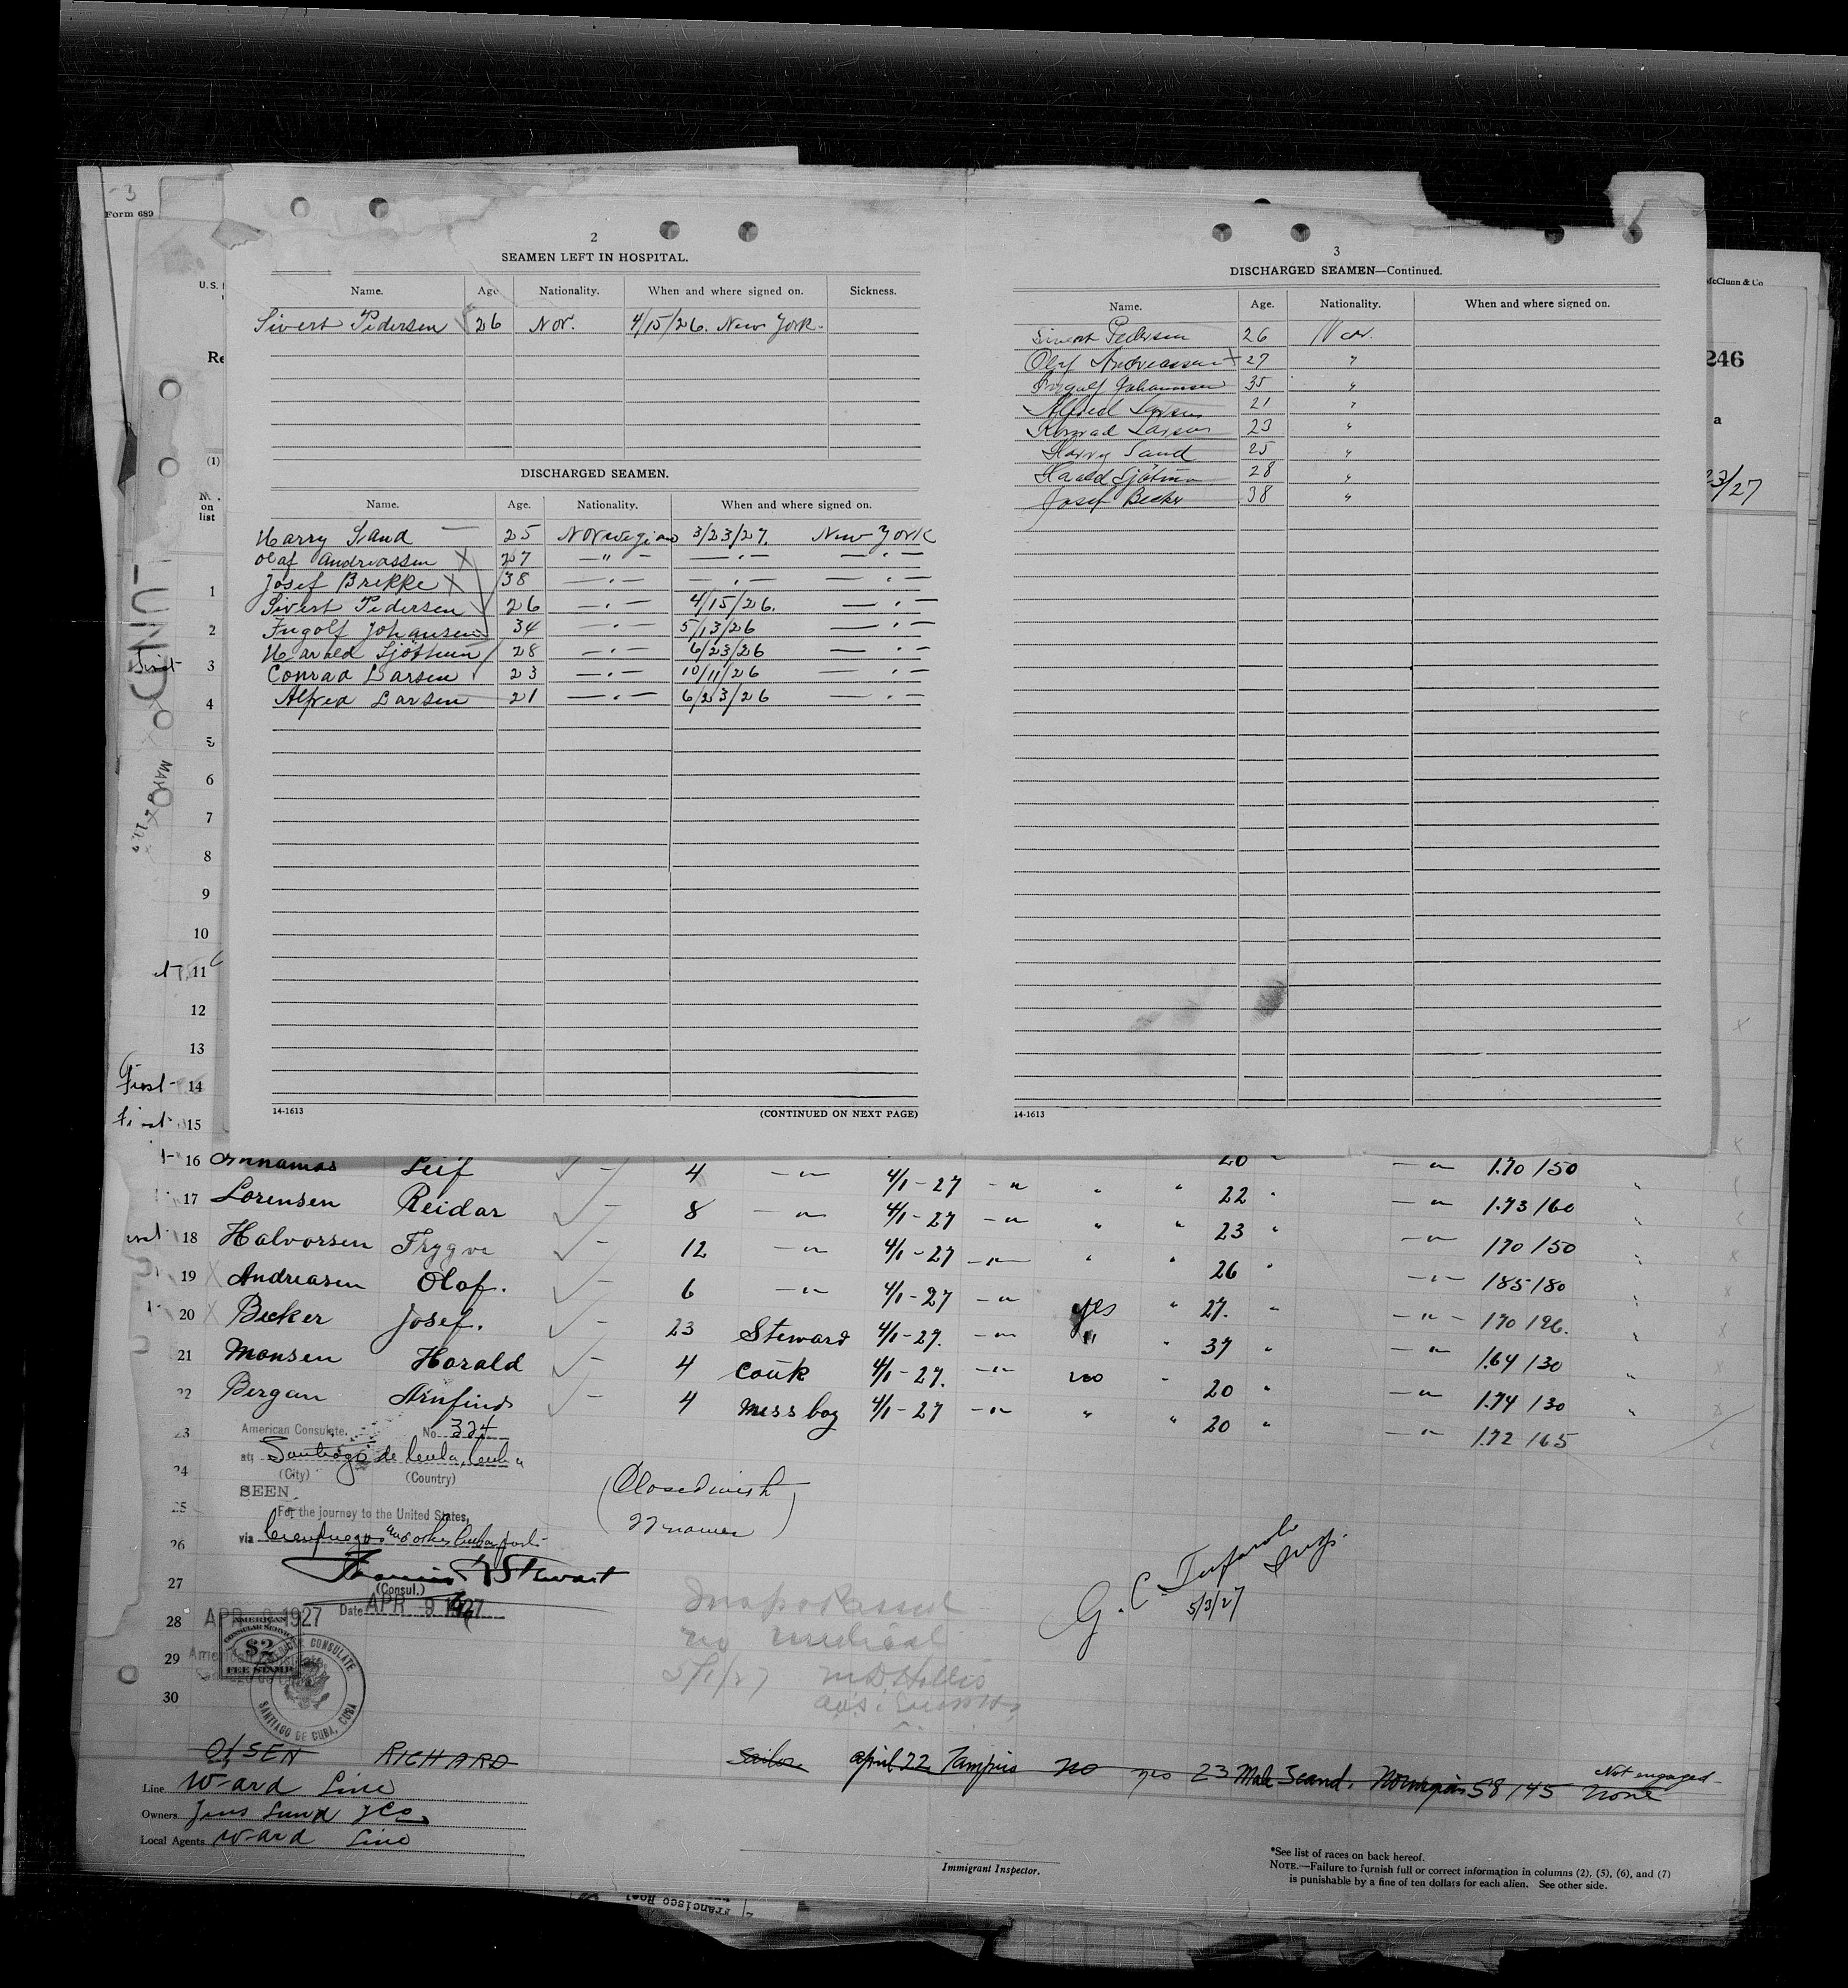 3
Form 689
U.S.
Re
(1)
No.
on
list
2
SEAMEN LEFT IN HOSPITAL.
Name. Age Nationality. When and where signed on. Sickness.
Sivert Pedersen 26 Nor. 4/15/26. New York.
DISCHARGED SEAMEN.
Name. Age. Nationality. When and where signed on.
Harry Sand — 25 Norwegian 3/23/27. New York
Olaf Andreassen X 27 — " — — . — — . —
Josef Brekke X 38 — . — — . — — . —
Sivert Pedersen 26 — . — 4/15/26. — . —
Ingolf Johansen 34 — . — 5/13/26 — . —
Harald Sjøthun 28 — . — 6/23/26 — . —
Conrad Larsen 23 — . — 10/11/26 — . —
Alfred Larsen 21 — . — 6/23/26 — . —
14-1613 (CONTINUED ON NEXT PAGE)
3
DISCHARGED SEAMEN—Continued.
Name. Age. Nationality. When and where signed on.
Sivert Pedersen 26 Nor.
Olaf Andreassen X 27 "
Ingolf Johannsen 35 "
Alfred Larsen 21 "
Konrad Larsen 23 "
Harry Sand 25 "
Harald Sjötun 28 "
Josef Becker 38 "
14-1613
McClunn & Co
246
a
23/27
1
2
3
4
5
6
7
8
9
10
11
12
13
First 14
First 15
16 Leif ✓ – 4 — " — 4/1-27 — " " " 20 " — " — 1.70/50
17 Lorensen Reidar ✓ – 8 — " — 4/1-27 — " " " 22 " — " — 1.73/60
18 Halvorsen Trygve ✓ – 12 — " — 4/1-27 — " — " " 23 " — " — 170/50
19 X Andreasen Olaf. ✓ – 6 — " — 4/1-27 — " — yes " 26 " — " — 185/80
20 X Becker Josef. ✓ – 23 Steward 4/1-27. — " — " " 27. " — " — 170/96.
21 Monsen Harald ✓ – 4 Cook 4/1-27. — " — no " 37 " — " — 1.64/30
22 Bergan Arnfind ✓ – 4 Mess boy 4/1-27 — " — " " 20 " — " — 1.74/30
20 " — " — 1.72/65
23
24
25
26
27
28
29
30
American Consulate. No. 324
at Santiago de Cuba, Cuba
(City) (Country)
SEEN
For the journey to the United States,
via Cienfuegos and other Cuban ports
(Consul.)
Date APR 9 1927
APR 9 1927
AMERICAN
CONSULAR SERVICE
$2
FEE STAMP
CONSULATE
SANTIAGO DE CUBA, CUBA
(Closed with
22 names)
no medical
5/1/27
G. C.
5/3/27
OLSEN RICHARD Sailor april 22 Tampico no yes 23 Male Scand. Norwegian 58/145 none
Not engaged
Line Ward Line
Owners Jens Lund & Co
Local Agents Ward Line
Immigrant Inspector.
*See list of races on back hereof.
NOTE.—Failure to furnish full or correct information in columns (2), (5), (6), and (7)
is punishable by a fine of ten dollars for each alien. See other side.